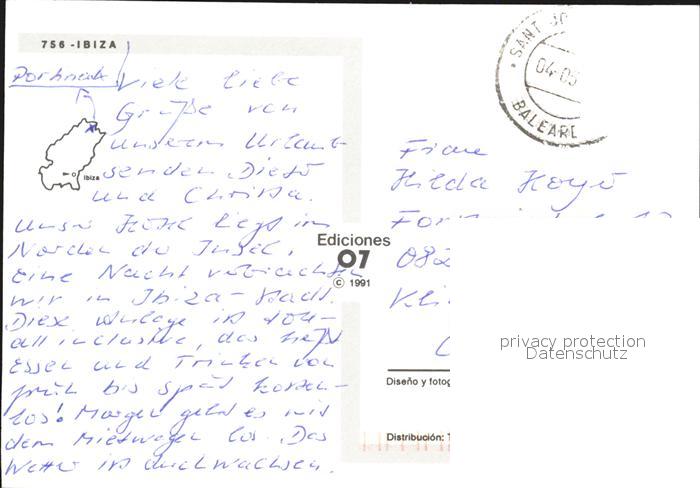 756 - IBIZA
Portinatx
Viele liebe
Grüße von
unserem Urlaub
senden Dieter
und Christa.
Ibiza
Unser Hotel liegt im
Norden der Insel.
Eine Nacht verbrachten
wir in Ibiza-Stadt.
Diese Anlage ist
all inclusive, das heißt
Essen und Trinken von
früh bis spät kosten-
los! Morgen geht es mit
dem Mietwagen los. Das
Wetter ist durchwachsen.
SANT JO
04-05
BALEARE
Frau
Hilda
082
Ediciones
07
© 1991
privacy protection
Datenschutz
Diseño y fotog
Distribución: